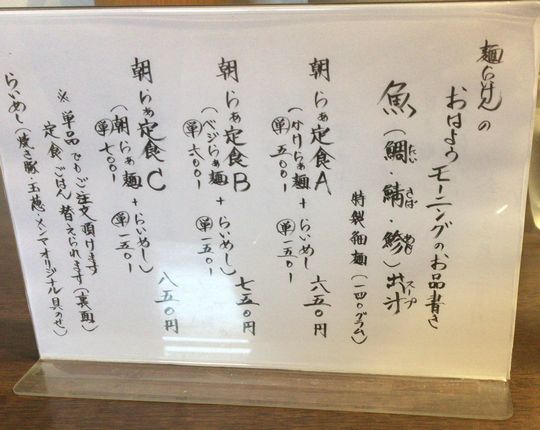 麺らぁ の
おはようモーニングのお品書き
魚(鯛・鯖・鯵)出汁
たい さば あじ スープ
特製細麺(一四〇グラム)
朝らぁ定食A 六五〇円
(かけらぁ麺+らいめし)
単 五〇〇 単 一五〇
朝らぁ定食B 七五〇円
(ベジらぁ麺+らいめし)
単 六〇〇 単 一五〇
朝らぁ定食C 八五〇円
(朝らぁ麺+らいめし)
単 七〇〇 単 一五〇
※単品でもご注文頂けます
定食ごはん替えられます(裏面)
らいめし(焼き豚・玉葱・メンマオリジナル具のせ)